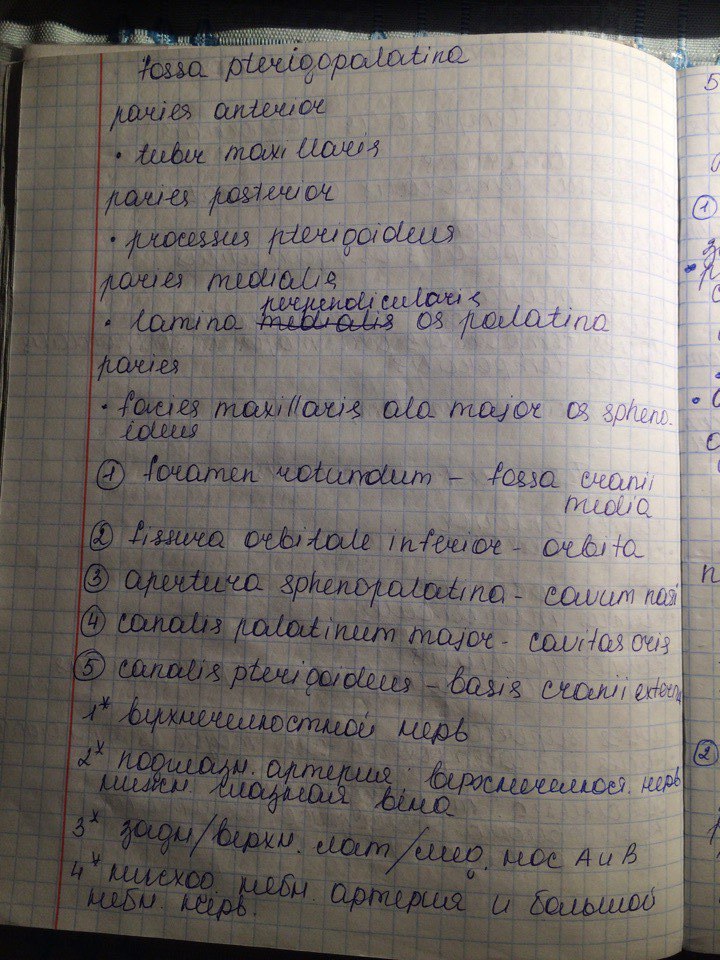 fossa pterigopalatina
paries anterior
• tuber maxillaris
paries posterior
• processus pterigoideus
paries medialis
perpendicularis
• lamina medialis os palatina
paries
• facies maxillaris ala major os spheno-
ideus
① foramen rotundum – fossa cranii
media
② fissura orbitale inferior - orbita
③ apertura sphenopalatina - cavum nasi
④ canalis palatinum major - cavitas oris
⑤ canalis pterigoideus – basis cranii externa
1* верхнечелюстной нерв
2* подглазн. артерия, верхнечелюст. нерв
нижн. глазная вена
3* задн/верхн. лат/мед. нос А и В
4* нисход. небн. артерия и большой
небн. нерв.
5
①
②